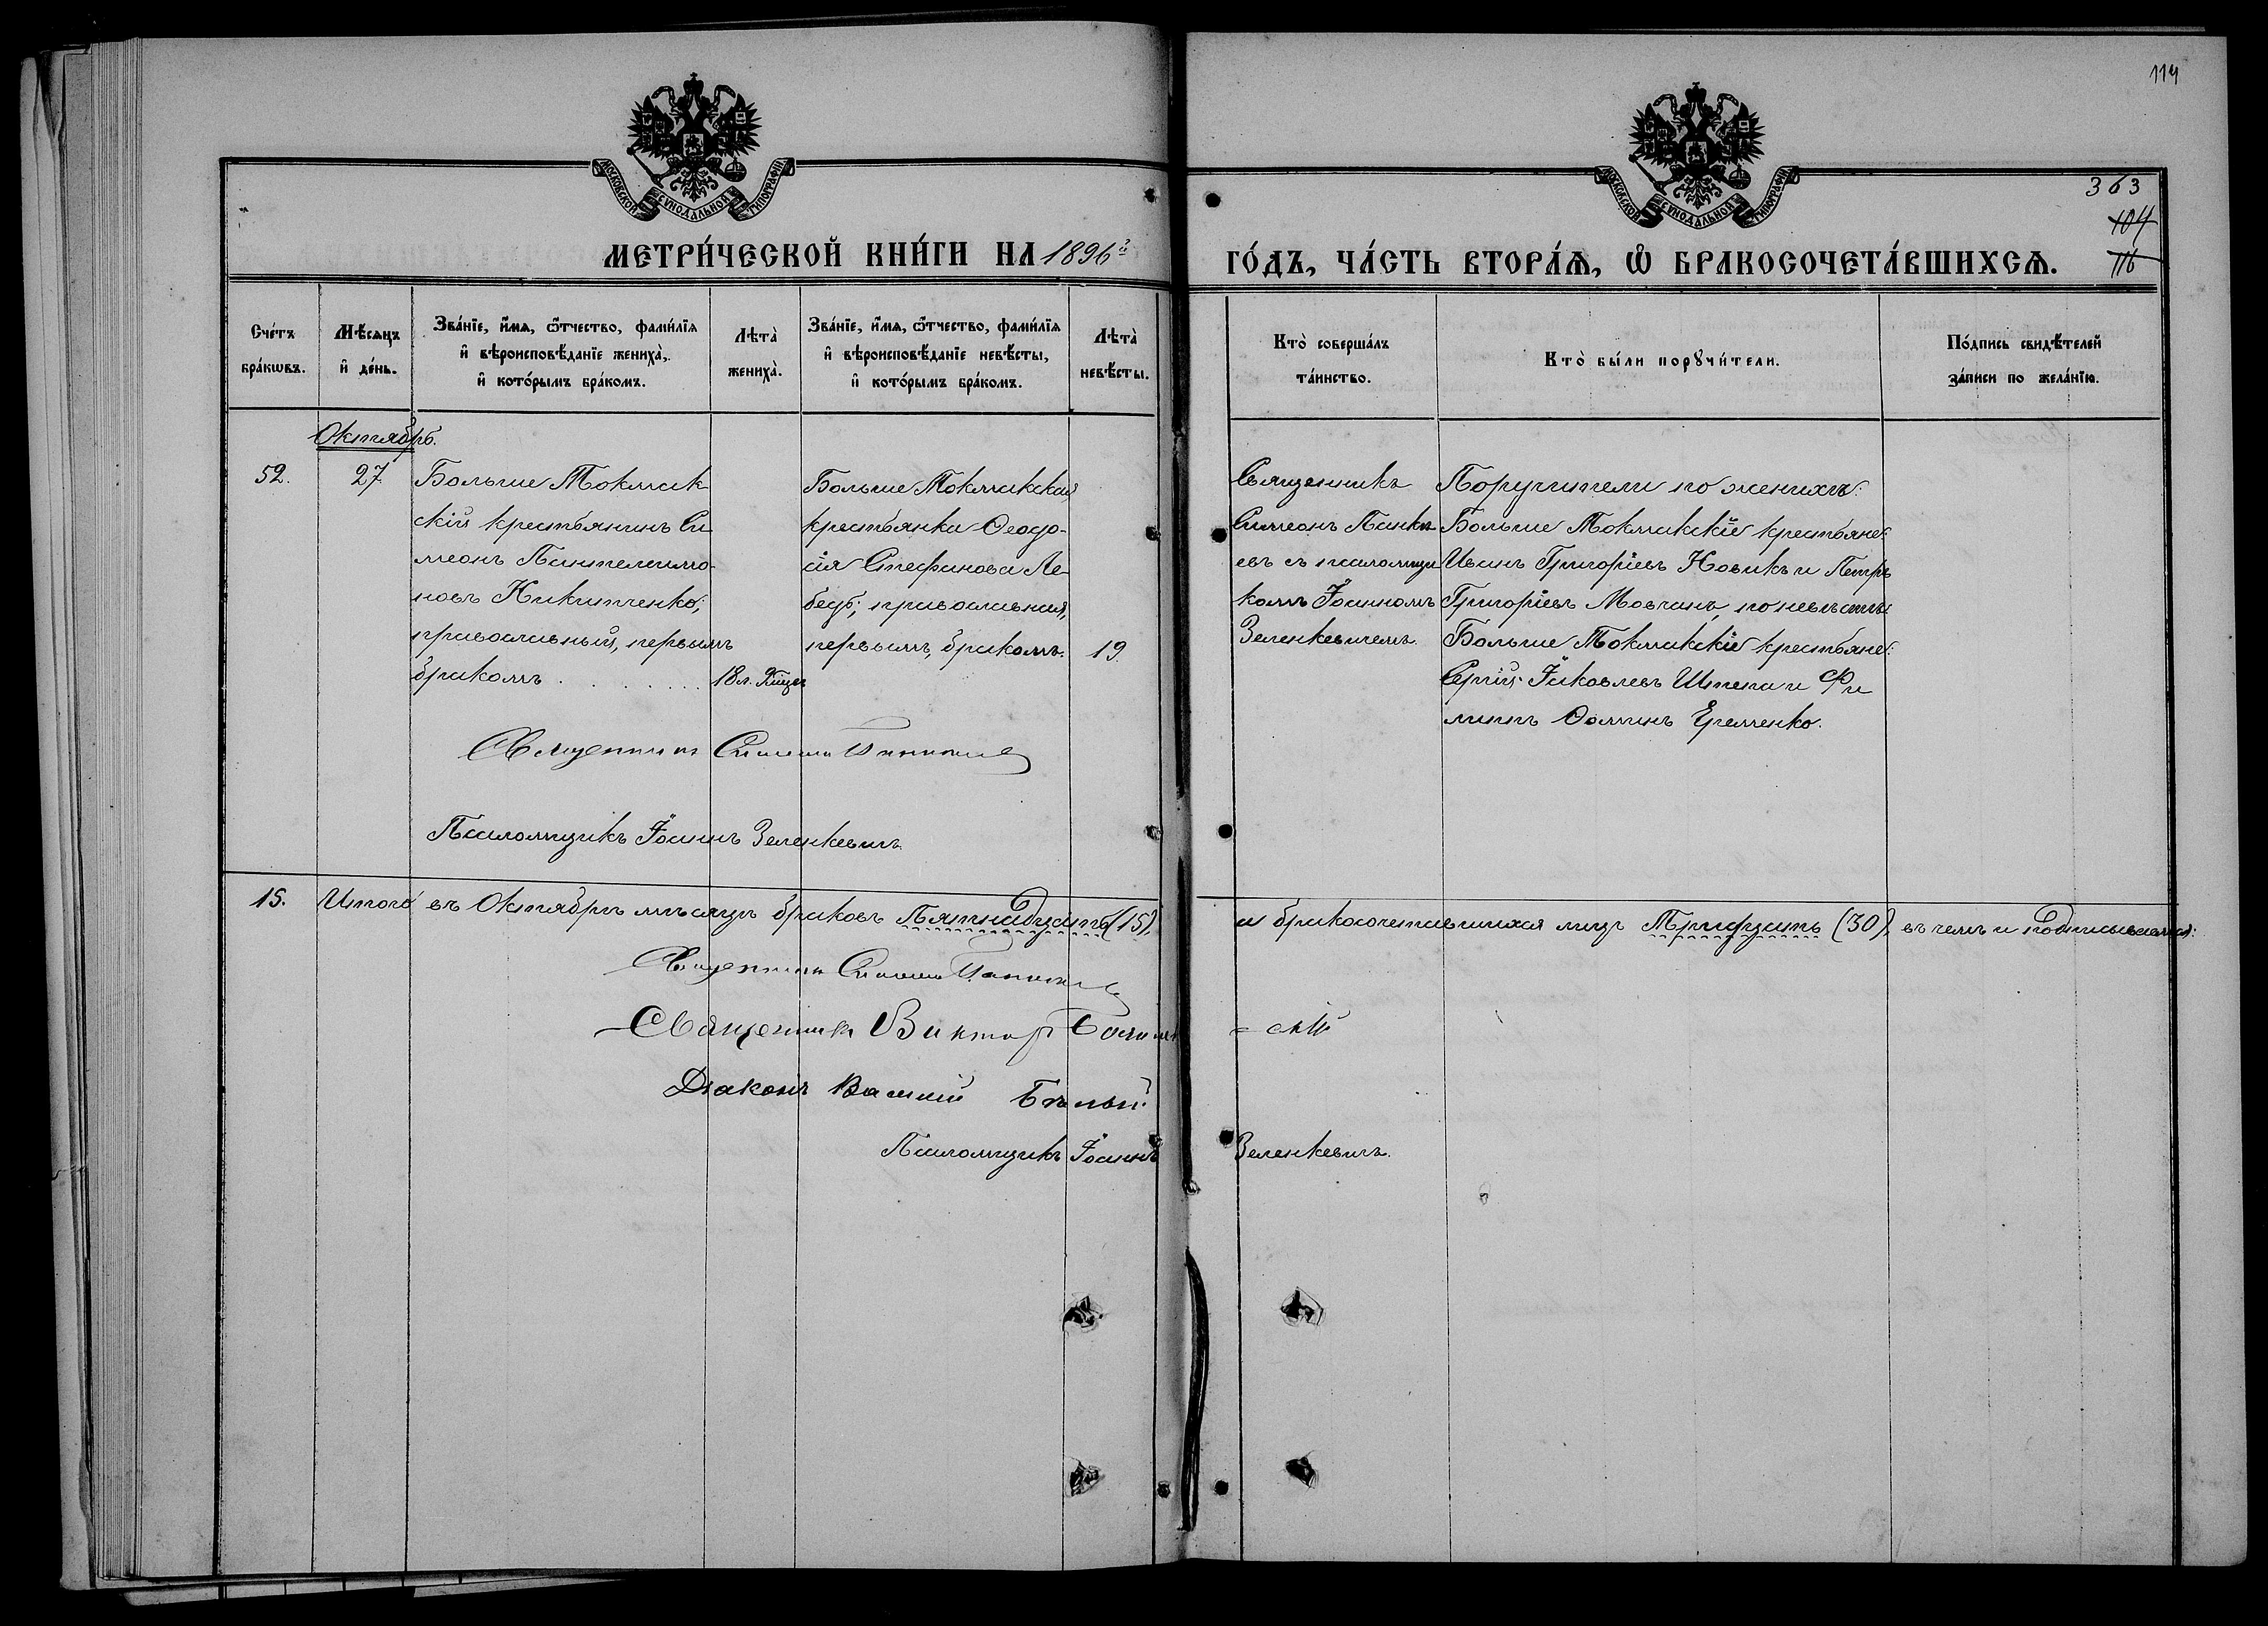 114
МОСКОВСКОЙ СѴНОДАЛЬНОЙ ТИПОГРАФІИ
МОСКОВСКОЙ СѴНОДАЛЬНОЙ ТИПОГРАФІИ
363
104
116
МЕТРИ́ЧЕСКОЙ КНИ́ГИ НА 1896й
ГО́ДЪ, ЧА́СТЬ ВТОРА́Ѧ, Ѽ БРАКОСОЧЕТА́ВШИХСѦ.
Сче́тъ бра́кѡвъ.
Мѣ́сѧцъ и҆ де́нь.
Зва́нїе, и҆́мѧ, ѻ҆́тчество, фами́лїѧ
и҆ вѣроисповѣ́данїе жениха̀,
и҆ кото́рымъ бра́комъ.
Лѣта̀ жениха̀.
Зва́нїе, и҆́мѧ, ѻ҆́тчество, фами́лїѧ
и҆ вѣроисповѣ́данїе невѣ́сты,
и҆ кото́рымъ бра́комъ.
Лѣта̀ невѣ́сты.
Кто̀ соверша́лъ
та́инство.
Кто̀ бы́ли порꙋчи́тели.
По́дпись свидѣ́телей
за́писи по жела́нїю.
Октябрь.
52.
27
Больше Токмак-
скій крестьянинъ Си
меонъ Пантелеимо-
новъ Никитченко;
православный, первымъ
бракомъ
18 л.
Больше Токмакская
крестьянка Ѳеодо-
сія Стефанова Ле-
бедь; православная,
первымъ, бракомъ.
19.
Священникъ
Симеонъ Панкѣ
евъ съ псаломщи
комъ Іоанномъ
Зеленкевичемъ.
Поручители по женихѣ:
Больше Токмакскіе крестьяне:
Иванъ Григоріевъ Новикъ и Петръ
Григоріевъ Мовчанъ, по невѣстѣ:
Больше Токмакскіе крестьяне:
Сергій Іаковлевъ Штепа и Фи
липпъ Ѳоминъ Еременко.
Священникъ Симеонъ
Псаломщикъ Іоаннъ Зеленкевичъ.
15. Итого въ Октябрѣ мѣсяцѣ браковъ Пятнадцать (15),
и бракосочетавшихся лицъ Тридцать (30), въ чемъ и подписываемся:
Священникъ Симеонъ
Священникъ Викторъ
= скій
Діаконъ Василій Бѣлый.
Псаломщикъ Іоаннъ
Зеленкевичъ.